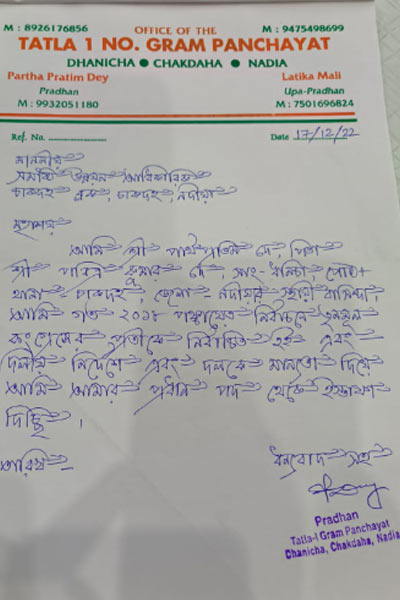 M : 8926176856
OFFICE OF THE
M : 9475498699
TATLA 1 NO. GRAM PANCHAYAT
DHANICHA ● CHAKDAHA ● NADIA
Partha Pratim Dey
Pradhan
M : 9932051180
Latika Mali
Upa-Pradhan
M : 7501696824
Ref. No.
Date 17/12/22
মাননীয়
সমষ্টি উন্নয়ন আধিকারিক
চাকদহ ব্লক, চাকদহ, নদীয়া
মহাশয়
আমি শ্রী পার্থ প্রতিম দে, পিতা
শ্রী পবিত্র কুমার দে সাং- ধনিচা, পোঃ+
থানা - চাকদহ, জেলা - নদীয়ার স্থায়ী বাসিন্দা,
আমি গত ২০১৮ পঞ্চায়েত নির্বাচনে তৃনমূল
কংগ্রেসের প্রতীকে নির্বাচিত হই এবং
দলীয় নির্দেশে এবং দলকে মান্যতা দিয়ে
আমি আমার প্রধান পদ থেকে ইস্তাফা
দিচ্ছি।
তারিখ -
ধন্যবাদ সহ
Pradhan
Tatla-I Gram Panchayat
Dhanicha, Chakdaha, Nadia